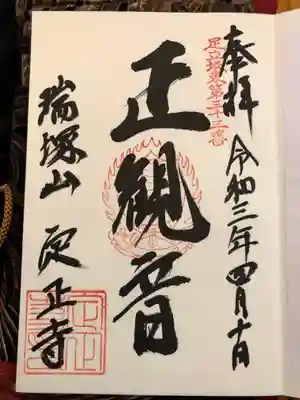 奉拝 令和三年四月十日
足立坂東第三十三番
正観音
瑞塚山 定正寺